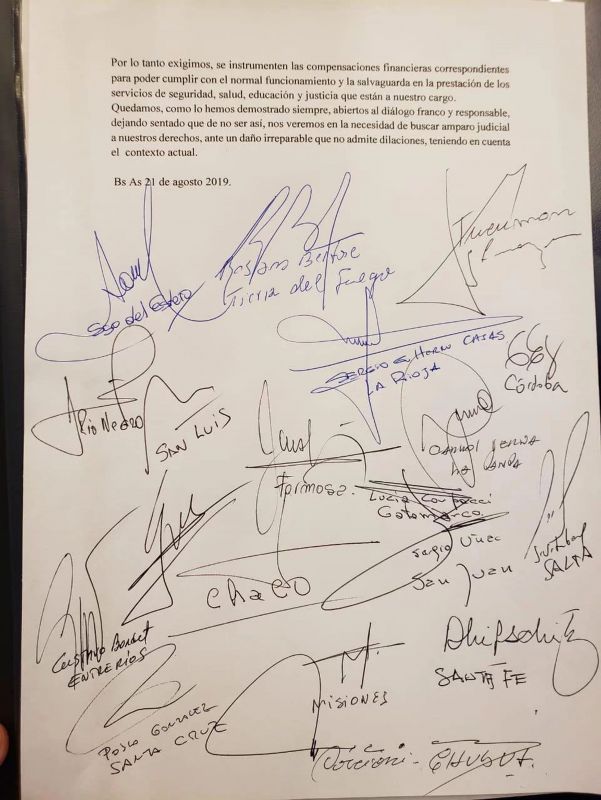 Por lo tanto exigimos, se instrumenten las compensaciones financieras correspondientes
para poder cumplir con el normal funcionamiento y la salvaguarda en la prestación de los
servicios de seguridad, salud, educación y justicia que están a nuestro cargo.
Quedamos, como lo hemos demostrado siempre, abiertos al diálogo franco y responsable,
dejando sentado que de no ser así, nos veremos en la necesidad de buscar amparo judicial
a nuestros derechos, ante un daño irreparable que no admite dilaciones, teniendo en cuenta
el contexto actual.
Bs As 21 de agosto 2019.
Tucuman
Sgo del Estero
Tierra del Fuego
SERGIO G. CASAS
LA RIOJA
Córdoba
Rio Negro
SAN LUIS
LA PAMPA
Formosa.
Lucía
Catamarca
Sergio Uñac
San Juan
SALTA
Chaco
GUSTAVO Bordet
ENTRE RÍOS
MISIONES
SANTA FE
Pablo GONZALEZ
SANTA CRUZ
CHUBUT.